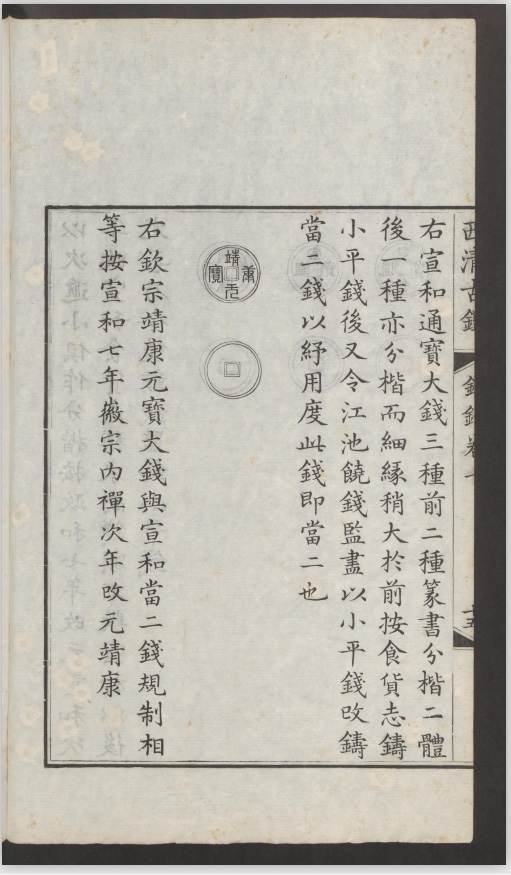 西清古鑑 錢錄卷十 十五
右宣和通寶大錢三種前二種篆書分楷二體
後一種亦分楷而細緣稍大於前按食貨志鑄
小平錢後又令江池饒錢監盡以小平錢改鑄
當二錢以紓用度此錢即當二也
靖康元寶
右欽宗靖康元寶大錢與宣和當二錢規制相
等按宣和七年徽宗內禪次年改元靖康